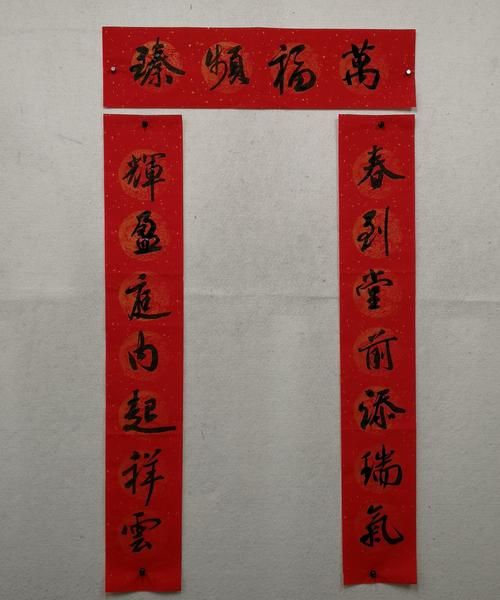 萬福頻臻
春到堂前添瑞氣
輝盈庭内起祥雲